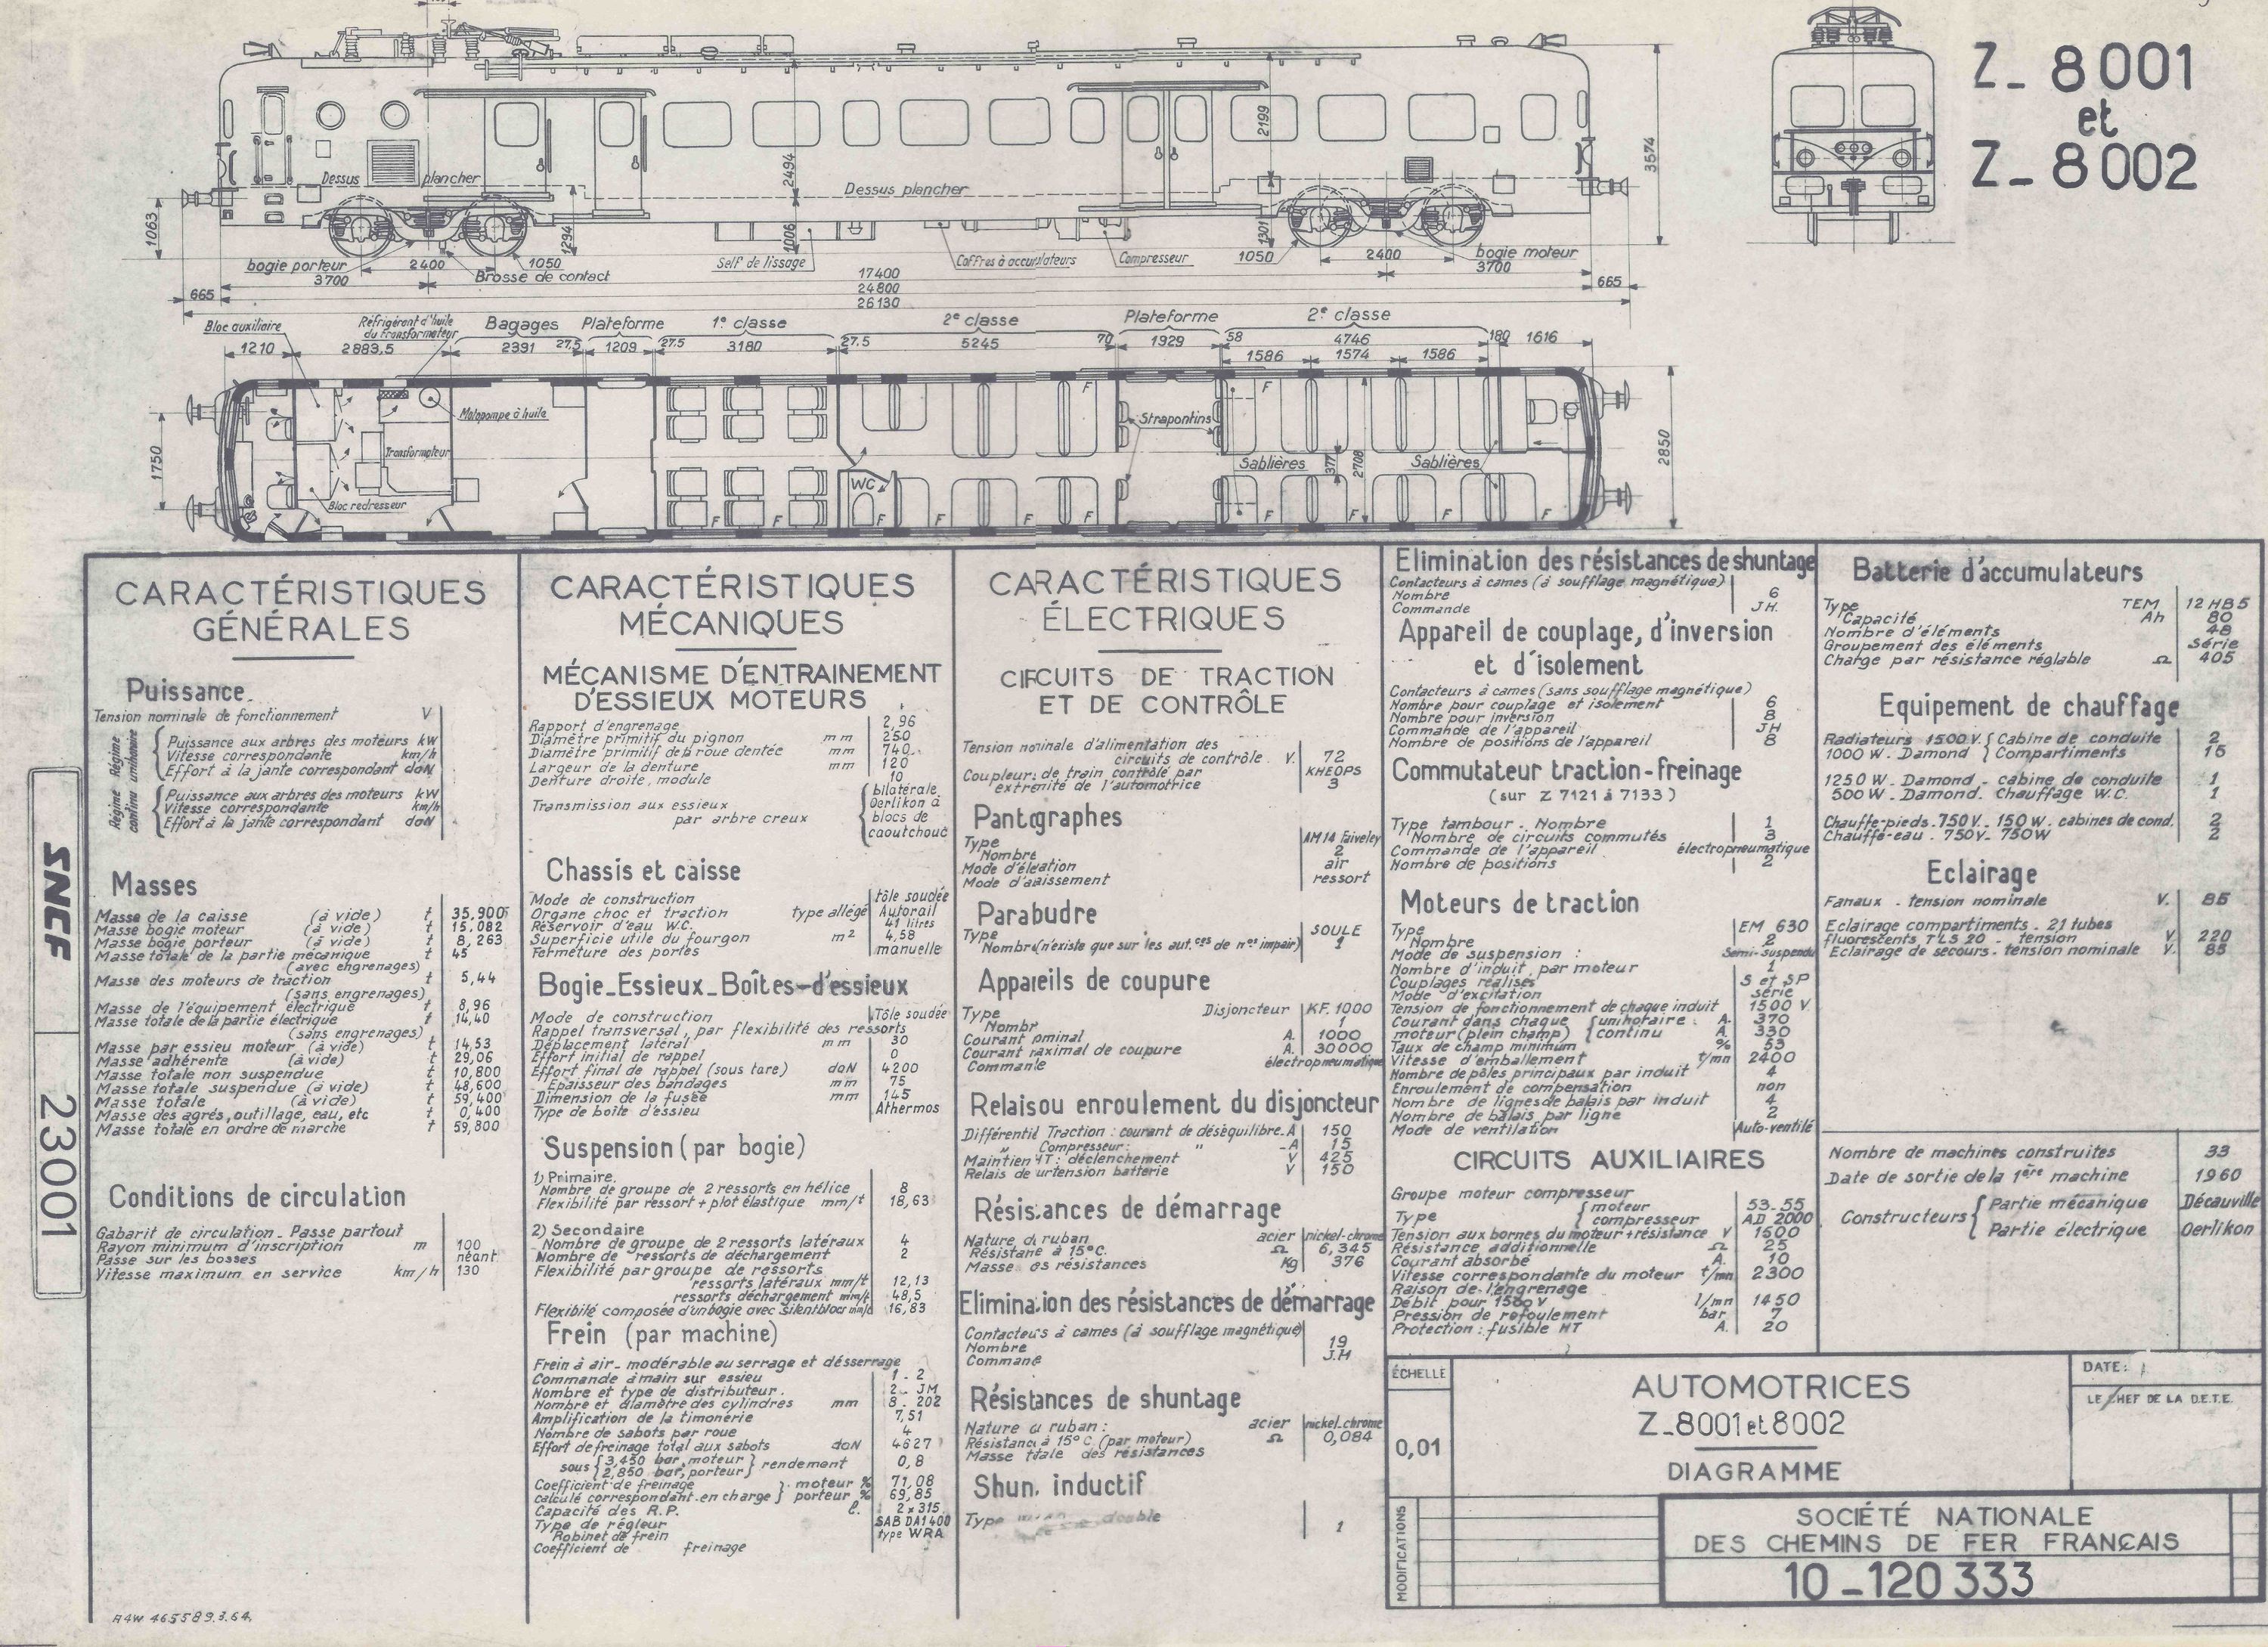 Z_ 8001
et
Z_ 8002
Dessus plancher
Dessus plancher
2494
2199
3574
1063
1294
1006
1301
bogie porteur
2400
1050
Brosse de contact
Self de lissage
Coffres à accumulateurs
Compresseur
1050
2400
bogie moteur
3700
3700
17400
24800
26130
665
665
Bloc auxiliaire
Réfrigérant d'huile
du transformateur
Bagages
Plateforme
1e classe
2e classe
Plateforme
2e classe
1210
2883,5
2391
27.5
1209
27.5
3180
27.5
5245
70
1929
58
4746
180
1616
1586
1574
1586
Motopompe à huile
Transformateur
Bloc redresseur
WC
Strapontins
Sablières
Sablières
377
2708
1750
2850
F F F F F F F F F F F F F
SNCF
23001
CARACTÉRISTIQUES
GÉNÉRALES
Puissance
Tension nominale de fonctionnement V
Régime unihoraire
Puissance aux arbres des moteurs kW
Vitesse correspondante km/h
Effort à la jante correspondant daN
Régime continu
Puissance aux arbres des moteurs kW
Vitesse correspondante km/h
Effort à la jante correspondant daN
Masses
Masse de la caisse (à vide) t 35,900
Masse bogie moteur (à vide) t 15.082
Masse bogie porteur (à vide) t 8,263
Masse totale de la partie mécanique t 45
(avec engrenages)
Masse des moteurs de traction t 5,44
(sans engrenages)
Masse de l'équipement électrique t 8,96
Masse totale de la partie électrique t 14,40
(sans engrenages)
Masse par essieu moteur (à vide) t 14,53
Masse adhérente (à vide) t 29,06
Masse totale non suspendue t 10,800
Masse totale suspendue (à vide) t 48,600
Masse totale (à vide) t 59,400
Masse des agrés, outillage, eau, etc t 0,400
Masse totale en ordre de marche t 59,800
Conditions de circulation
Gabarit de circulation - Passe partout
Rayon minimum d'inscription m 100
Passe sur les bosses néant
Vitesse maximum en service km/h 130
A4W 465589.3.64.
CARACTÉRISTIQUES
MÉCANIQUES
MÉCANISME D'ENTRAINEMENT
D'ESSIEUX MOTEURS
Rapport d'engrenage 2,96
Diamètre primitif du pignon mm 250
Diamètre primitif de la roue dentée mm 740
Largeur de la denture mm 120
Denture droite, module 10
Transmission aux essieux
par arbre creux
bilatérale
Oerlikon à
blocs de
caoutchouc
Chassis et caisse
Mode de construction tôle soudée
Organe choc et traction type allégé Autorail
Réservoir d'eau W.C. 41 litres
Superficie utile du fourgon m² 4,58
Fermeture des portes manuelle
Bogie_Essieux_Boîtes-d'essieux
Mode de construction Tôle soudée
Rappel transversal, par flexibilité des ressorts
Déplacement latéral mm 30
Effort initial de rappel 0
Effort final de rappel (sous tare) daN 4200
Epaisseur des bandages mm 75
Dimension de la fusée mm 145
Type de boîte d'essieu Athermos
Suspension (par bogie)
1) Primaire
Nombre de groupe de 2 ressorts en hélice 8
Flexibilité par ressort + plot élastique mm/t 18,63
2) Secondaire
Nombre de groupe de 2 ressorts latéraux 4
Nombre de ressorts de déchargement 2
Flexibilité par groupe de ressorts
ressorts latéraux mm/t 12,13
ressorts déchargement mm/t 48,5
Flexibilé composée d'un bogie avec Silentblocs mm/t 16,83
Frein (par machine)
Frein à air - modérable au serrage et désserrage
Commande à main sur essieu 1 - 2
Nombre et type de distributeur. 2 - JM
Nombre et diamètre des cylindres mm 8 . 202
Amplification de la timonerie 7,51
Nombre de sabots par roue 4
Effort de freinage total aux sabots daN 4627
sous 3,450 bar, moteur
2,850 bar, porteur rendement 0,8
Coefficient de freinage moteur % 71,08
calculé correspondant en charge porteur % 69,85
Capacité des R.P. l. 2 x 315
Type de régleur SAB DA1400
Robinet de frein type WRA
Coefficient de freinage
CARACTÉRISTIQUES
ÉLECTRIQUES
CIRCUITS DE TRACTION
ET DE CONTRÔLE
Tension nominale d'alimentation des
circuits de contrôle V. 72
Coupleurs de train contrôlé par KHEOPS
extrémité de l'automotrice 3
Pantographes
Type AM14 Faiveley
Nombre 2
Mode d'élévation air
Mode d'abaissement ressort
Parafoudre
Type SOULE
Nombre (n'existe que sur les aut.ces de nos impair) 1
Appareils de coupure
Type Disjoncteur KF.1000
Nombr 1
Courant ominal A. 1000
Courant maximal de coupure A. 30000
Commande électropneumatique
Relais ou enroulement du disjoncteur
Différentiel Traction : courant de déséquilibre A 150
" Compresseur : " A 15
Maintien HT : déclenchement V 425
Relais de tension batterie V 150
Résistances de démarrage
Nature du ruban acier nickel-chrome
Résistance à 15°C. Ω 6,345
Masse des résistances Kg 376
Elimination des résistances de démarrage
Contacteurs à cames (à soufflage magnétique)
Nombre 19
Commande J.H
Résistances de shuntage
Nature du ruban : acier nickel-chrome
Résistance à 15° C (par moteur) Ω 0,084
Masse totale des résistances
Shunt inductif
Type double 1
Elimination des résistances de shuntage
Contacteurs à cames (à soufflage magnétique)
Nombre 6
Commande J.H.
Appareil de couplage, d'inversion
et d'isolement
Contacteurs à cames (sans soufflage magnétique)
Nombre pour couplage et isolement 6
Nombre pour inversion 8
Commande de l'appareil JH
Nombre de positions de l'appareil 8
Commutateur traction-freinage
(sur Z 7121 à 7133)
Type tambour - Nombre 1
Nombre de circuits commutés 3
Commande de l'appareil électropneumatique
Nombre de positions 2
Moteurs de traction
Type EM 630
Nombre 2
Mode de suspension : Semi-Suspendu
Nombre d'induit par moteur 1
Couplages réalisés S et SP
Mode d'excitation série
Tension de fonctionnement de chaque induit 1500 V
Courant dans chaque unihoraire A. 370
moteur (plein champ) continu A. 330
Taux de champ minimum % 53
Vitesse d'emballement t/mn 2400
Nombre de pôles principaux par induit 4
Enroulement de compensation non
Nombre de lignes de balais par induit 4
Nombre de balais par ligne 2
Mode de ventilation Auto-ventilé
CIRCUITS AUXILIAIRES
Groupe moteur compresseur
Type moteur 53-55
compresseur AD 2000
Tension aux bornes du moteur + résistance V 1500
Résistance additionnelle Ω 25
Courant absorbé A. 10
Vitesse correspondante du moteur t/mn 2300
Raison de l'engrenage
Débit pour 1500 V l/mn 1450
Pression de refoulement bar 7
Protection : fusible HT A. 20
Batterie d'accumulateurs
Type TEM 12 HB5
Capacité Ah 80
Nombre d'éléments 48
Groupement des éléments Série
Charge par résistance réglable Ω 405
Equipement de chauffage
Radiateurs 1500 V. Cabine de conduite 2
1000 W. Damond Compartiments 16
1250 W. Damond - cabine de conduite 1
500 W. Damond. Chauffage W.C. 1
Chauffe-pieds - 750 V - 150 W. cabines de cond. 2
Chauffe-eau - 750 V - 750 W 2
Eclairage
Fanaux - tension nominale V. 85
Eclairage compartiments - 21 tubes
fluorescents TLS 20 - tension V. 220
Eclairage de secours - tension nominale V. 85
Nombre de machines construites 33
Date de sortie de la 1ère machine 1960
Constructeurs Partie mécanique Décauville
Partie électrique Oerlikon
ÉCHELLE
0,01
AUTOMOTRICES
Z_8001 et 8002
DIAGRAMME
DATE :
LE CHEF DE LA D.E.T.E.
MODIFICATIONS
SOCIÉTÉ NATIONALE
DES CHEMINS DE FER FRANÇAIS
10_120 333